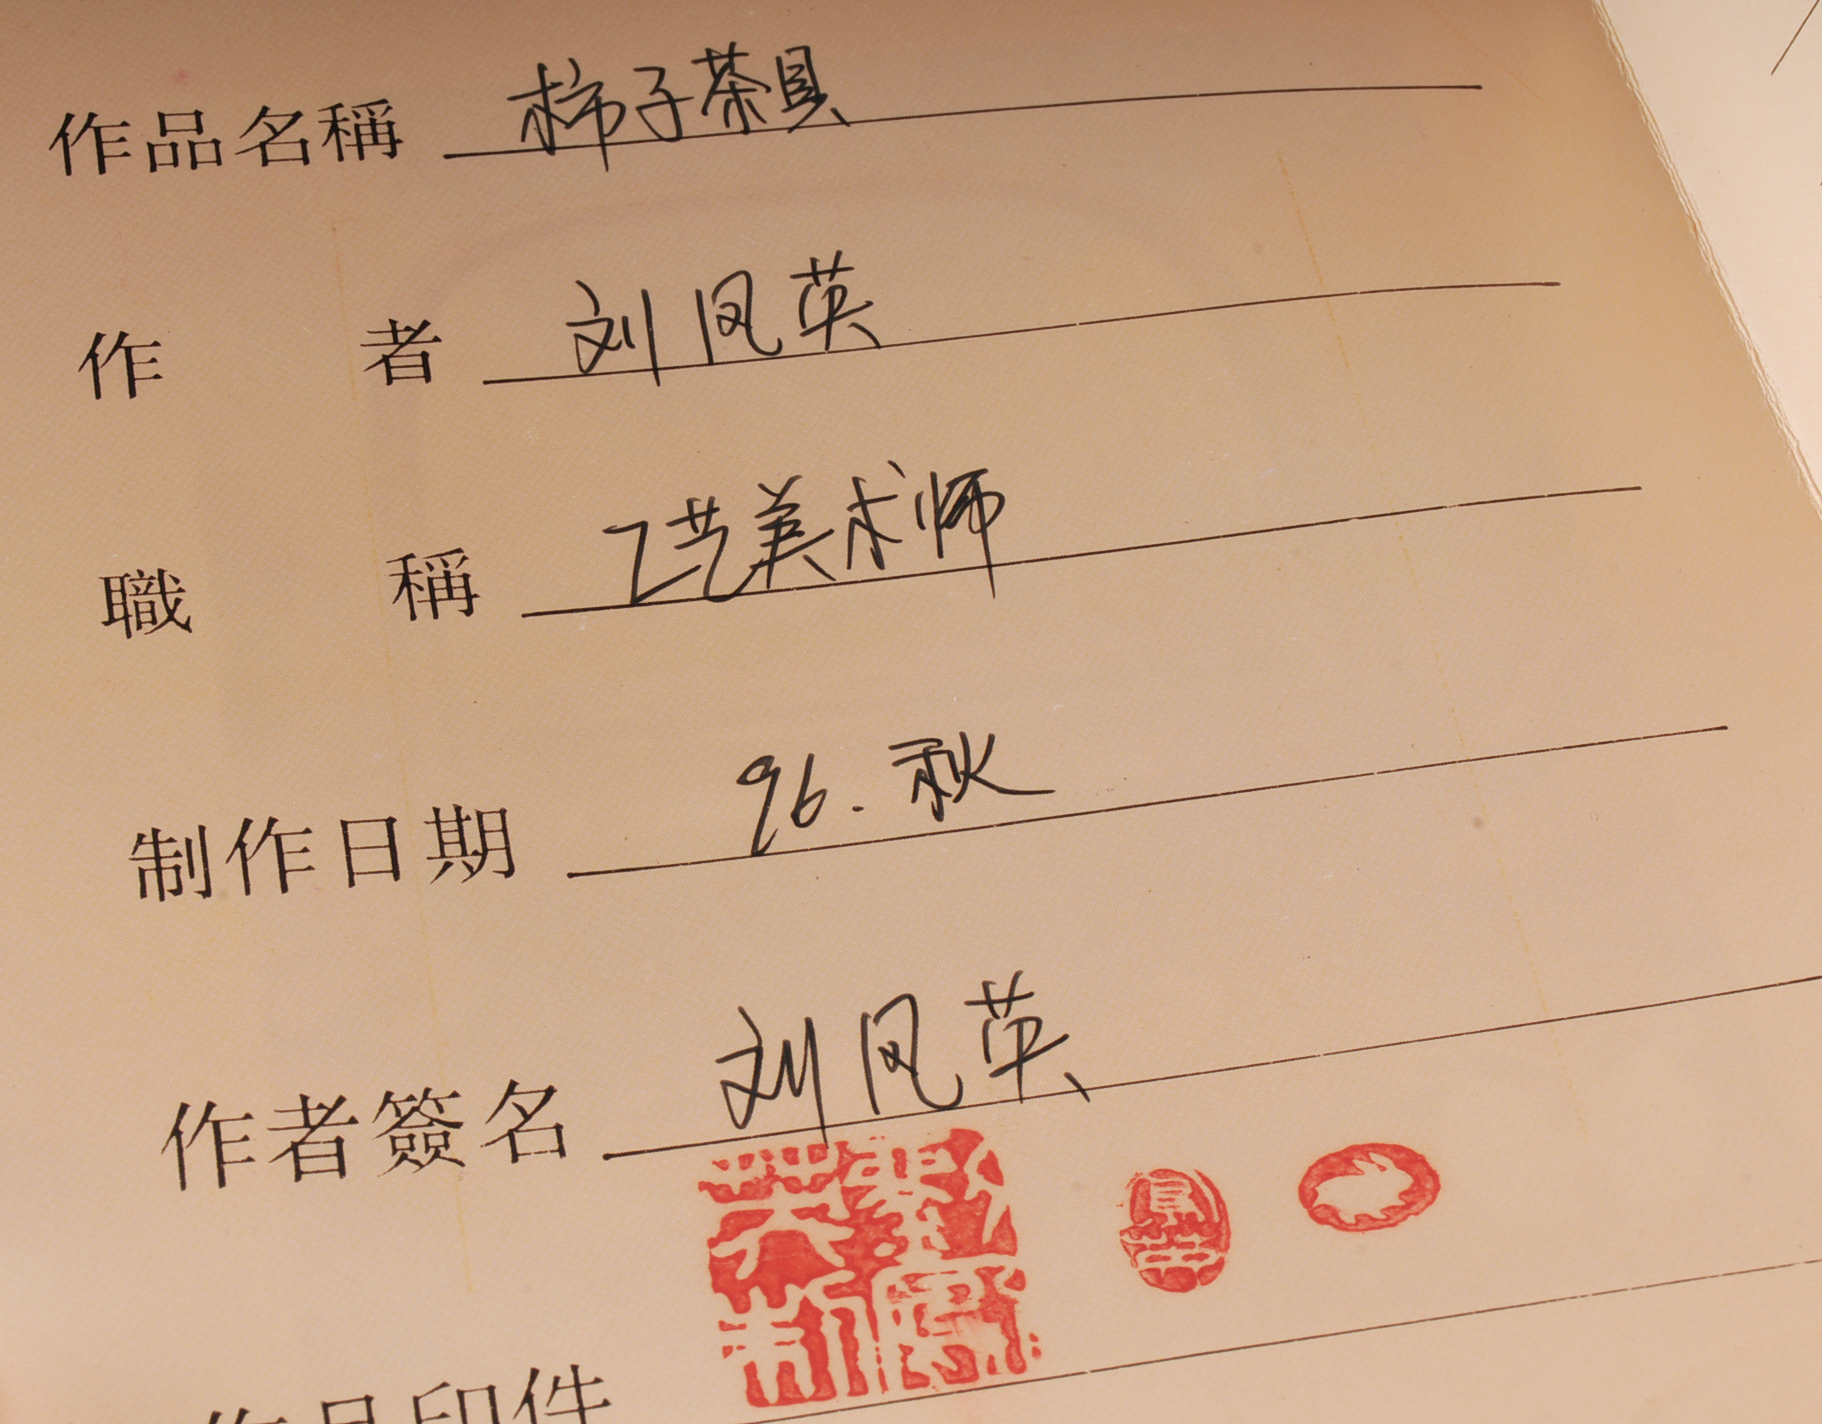 作品名稱 柿子茶具
作者 刘凤英
職稱 工艺美术师
制作日期 96.秋
作者簽名 刘凤英
作品印件